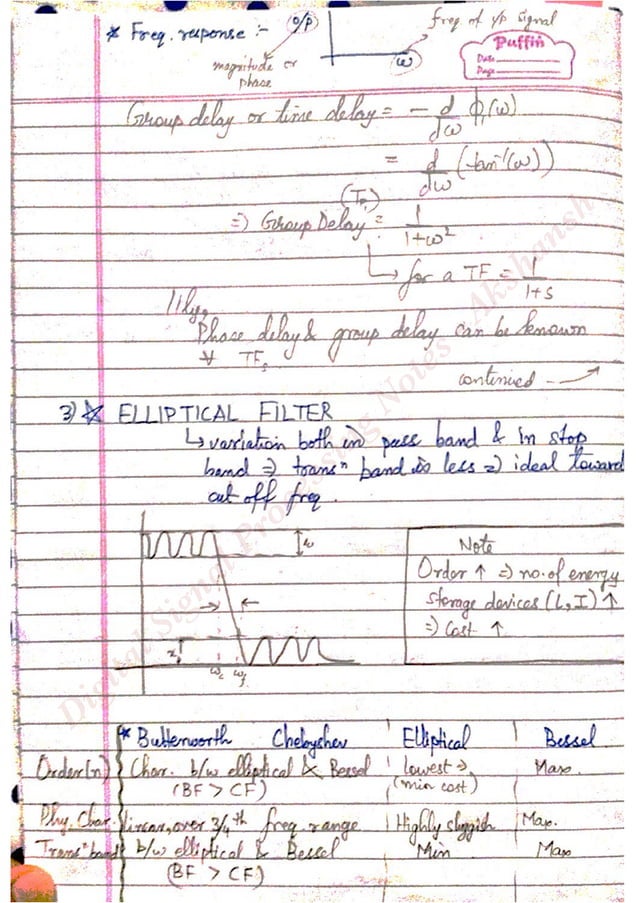 * Freq. response :- o/p freq of i/p signal
ω
magnitude or
phase
Puffin
Date
Page
Group delay or time delay = - d/dω φ(ω)
= d/dω (tan⁻¹(ω))
⇒ Group Delay = 1/1+ω²
↳ for a TF = 1/1+s
111ly,
Phase delay & group delay can be known
∀ TFs
continued →
3) * ELLIPTICAL FILTER
↳ variation both in pass band & in stop
band ⇒ transⁿ band is less ⇒ ideal toward
cut off freq.
Note
Order ↑ ⇒ no. of energy
storage devices (L, I) ↑
⇒ Cost ↑
ωc
* Butterworth Chebyshev Elliptical Bessel
Order(n) Char. b/w elliptical & Bessel lowest → Max.
(BF > CF) (min cost)
Phy. Char. linear, over 3/4th freq. range Highly sluggish Max.
Transⁿ band b/w elliptical & Bessel Min Max
(BF > CF)
Digital Signal Processing Notes - Akshansh